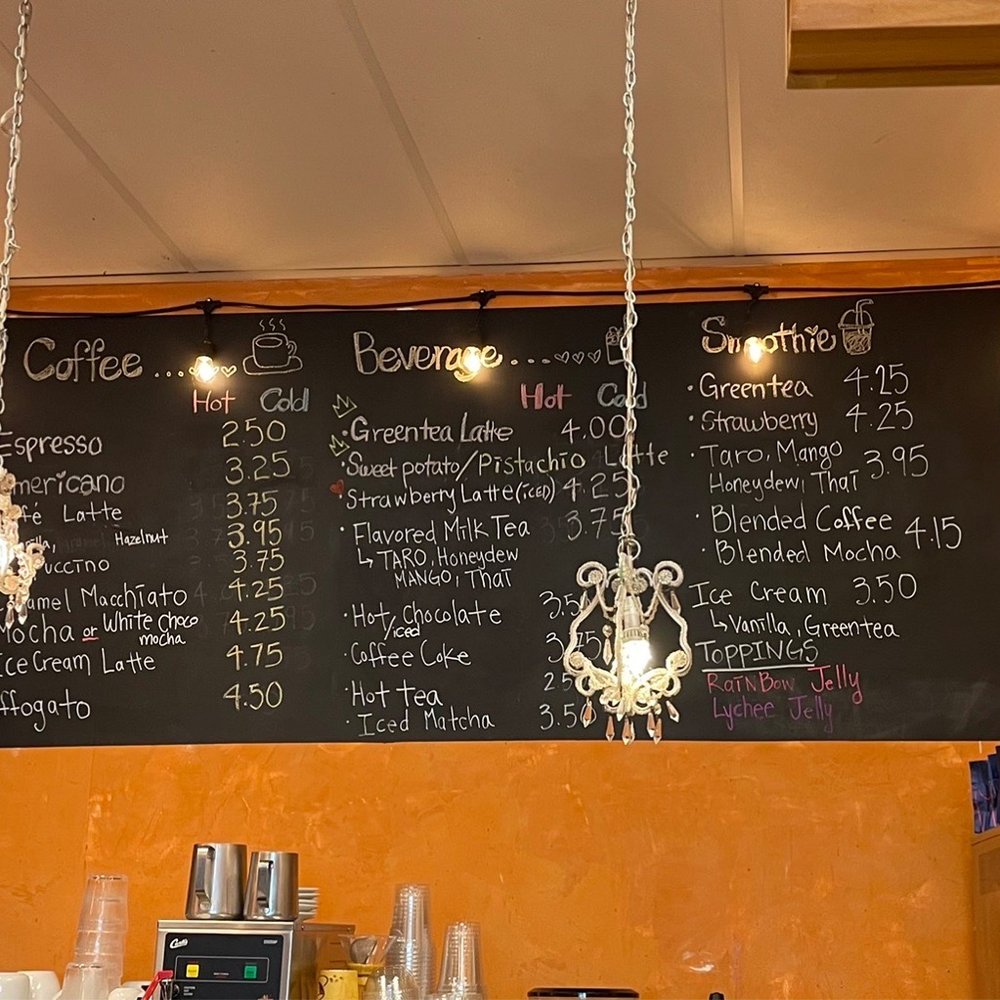 Coffee
Hot Cold
Espresso 2.50
mericano 3.25
fé Latte 3.75
Hazelnut 3.95
uccino 3.75
amel Macchiato 4.25
Mocha or White Choco mocha 4.25
Ice Cream Latte 4.75
ffogato 4.50
Beverage
Hot Cold
Greentea Latte 4.00
Sweet potato/Pistachio Latte
Strawberry Latte (iced) 4.25
Flavored Milk Tea 3.75
TARO, Honeydew
MANGO, Thai
Hot/iced Chocolate 3.5
Coffee Coke
Hot tea
Iced Matcha 3.50
Smoothie
Greentea 4.25
Strawberry 4.25
Taro, Mango
Honeydew, Thai 3.95
Blended Coffee
Blended Mocha 4.15
Ice Cream 3.50
Vanilla, Greentea
TOPPINGS
RAINBOW Jelly
Lychee Jelly
Curtis